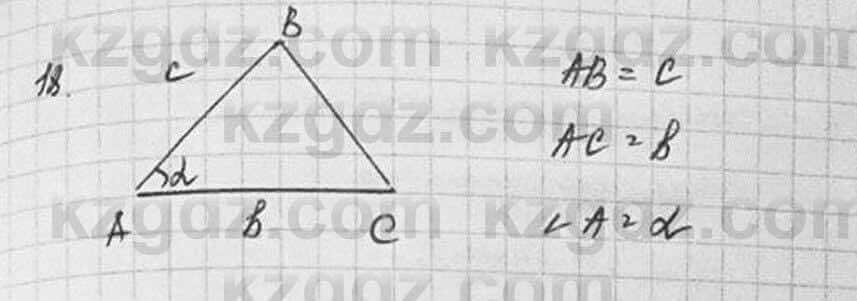 kzgdz.com kzgdz.com
18.
B
c
AB = c
kzgdz.com
AC = b
α
kzgdz.com kzgdz.com
A b C
∠A = α
kzgdz.com